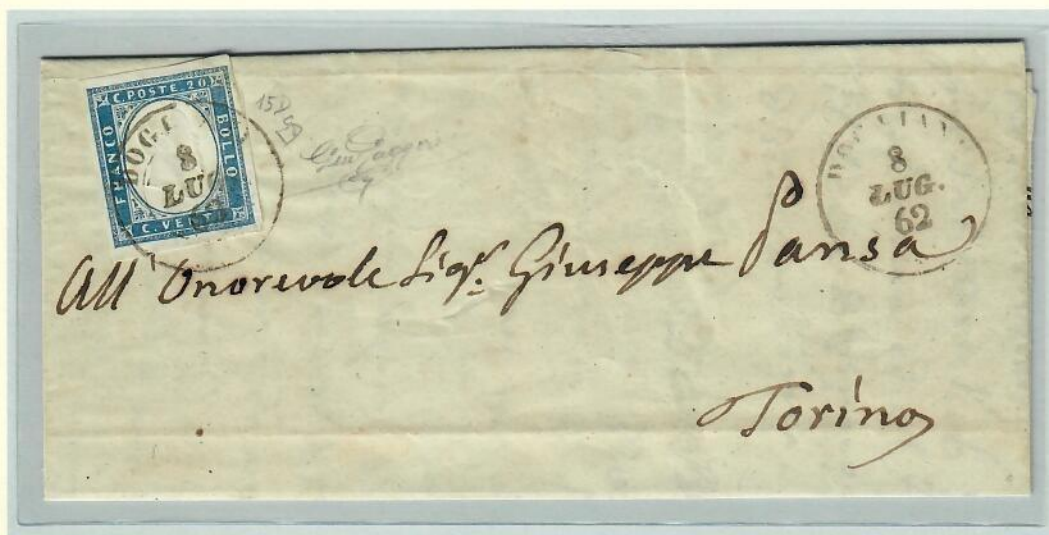 C. POSTE 20
FRANCO
BOLLO
C. VENTI
8
LUG.
DOGLIANI
8
LUG.
62
All' Onorevole Sigr. Giuseppe Pansa
Torino